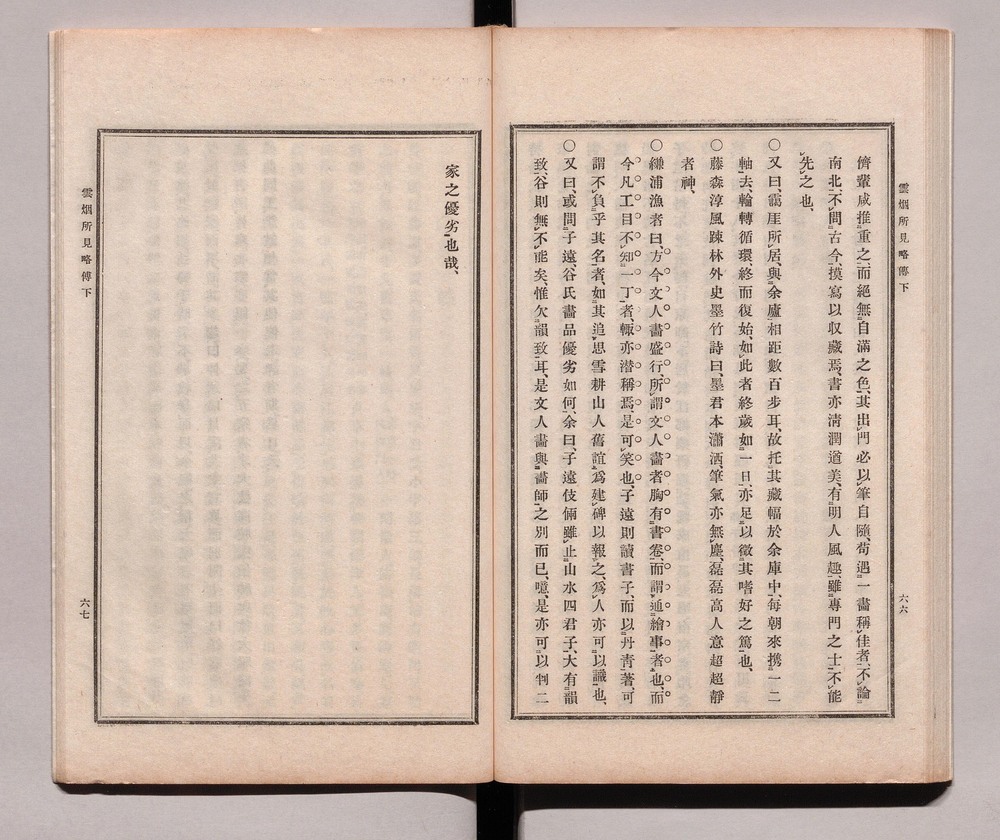 雲烟所見略傳下
儕輩咸推重之、而絕無自滿之色、其出門必以筆自隨、苟遇一畵稱佳者、不論
南北、不問古今、摸寫以収藏焉、書亦淸潤遒美、有明人風趣、雖專門之士、不能
先之也、
○又曰、靄厓所居、與余廬相距數百步耳、故托其藏幅於余庫中、每朝來携一二
軸去、輪轉循環、終而復始、如此者終歲如一日、亦足以徵其嗜好之篤也、
○藤森淳風踈林外史墨竹詩曰、墨君本瀟洒、筆氣亦無塵、磊磊高人意超超靜
者神、
○縑浦漁者曰、方今文人畵盛行、所謂文人畵者胸有書卷、而謂通繪事者也、而
今凡工目不知一丁者、輙亦潜稱焉、是可笑也、子遠則讀書子、而以丹靑著、可
謂不負乎其名者、如其追思雪耕山人舊誼、爲建碑以報之、爲人亦可以識也、
○又曰、或問子遠、谷氏畵品優劣如何、余曰、子遠伎倆雖止山水四君子、大有韻
致、谷則無不能矣、惟欠韻致耳、是文人畵與畵師之別而已、噫、是亦可以判二
六六
家之優劣也哉、
雲烟所見略傳下
六七